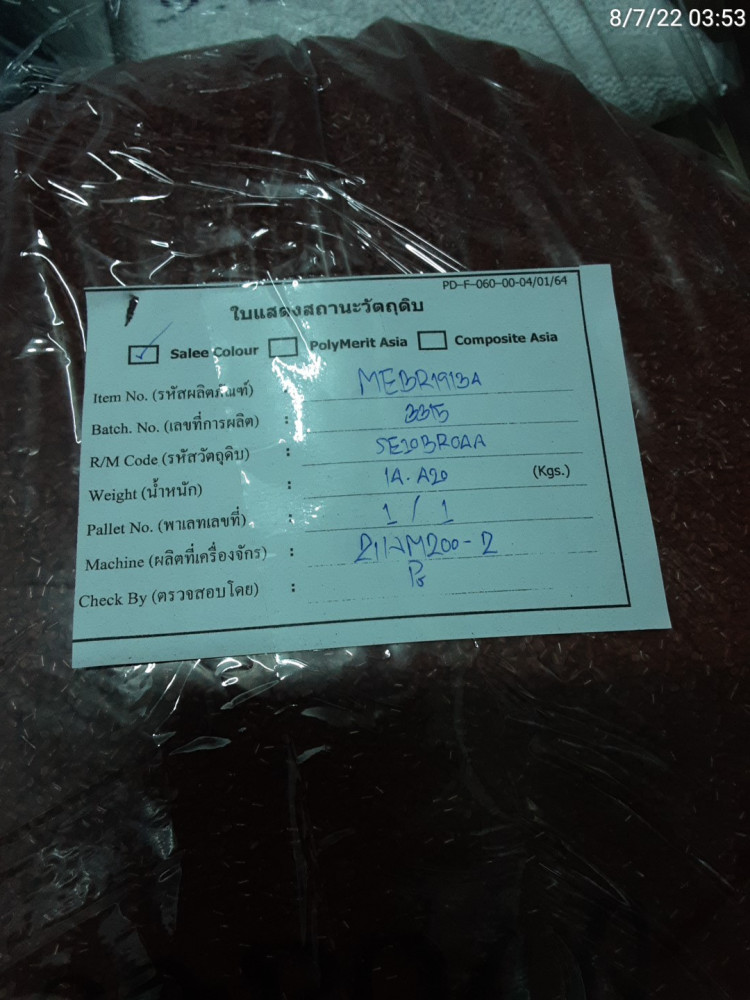 8/7/22 03:53
PD-F-060-00-04/01/64
ใบแสดงสถานะวัตถุดิบ
Salee Colour PolyMerit Asia Composite Asia
Item No. (รหัสผลิตภัณฑ์) MEBR1913A
Batch. No. (เลขที่การผลิต) : 335
R/M Code (รหัสวัตถุดิบ) : SE20BR0AA
Weight (น้ำหนัก) : (Kgs.)
Pallet No. (พาเลทเลขที่) : 1 / 1
Machine (ผลิตที่เครื่องจักร) :
Check By (ตรวจสอบโดย) :